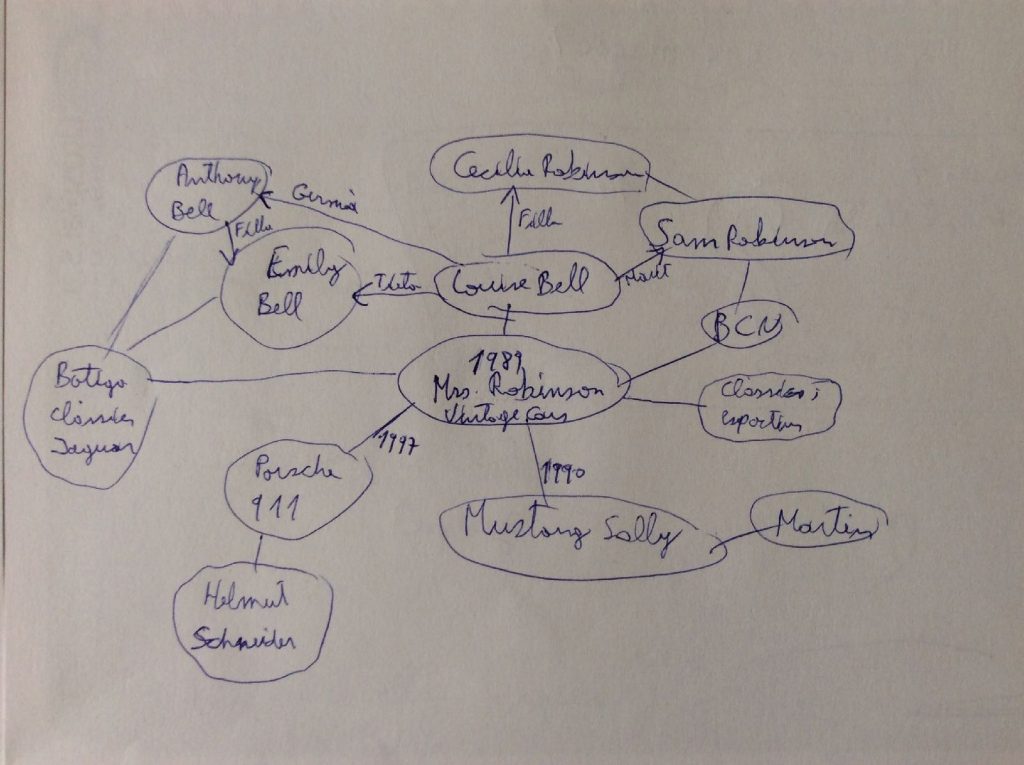 Cecilia Robinson
Anthony
Bell
Germà
Filla
Filla
Sam Robinson
Emily
Bell
Louise Bell
Marit
BCN
1989
Mrs. Robinson
Vintage Cars
Botiga
Clàssics
Jaguar
Clàssics i
esportius
1997
Porsche
911
1990
Mustang Sally
Martin
Helmut
Schneider